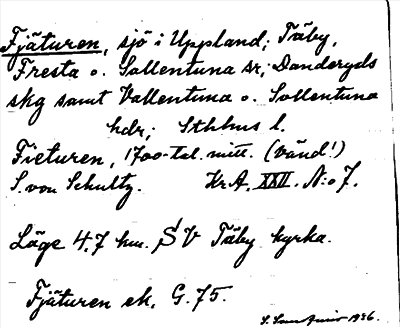 Fjäturen, sjö i Uppland; Täby,
Fresta o. Sollentuna sr; Danderyds
skg samt Vallentuna o. Sollentuna
hdr; Sthlms l.
Fieturen, 1700-tal. mitt. (vänd!)
S. von Schultz. Kr.A. XXII. N:o 7.
Läge 4,7 km. SV Täby kyrka.
Fjäturen ek. G. 75.
1936.